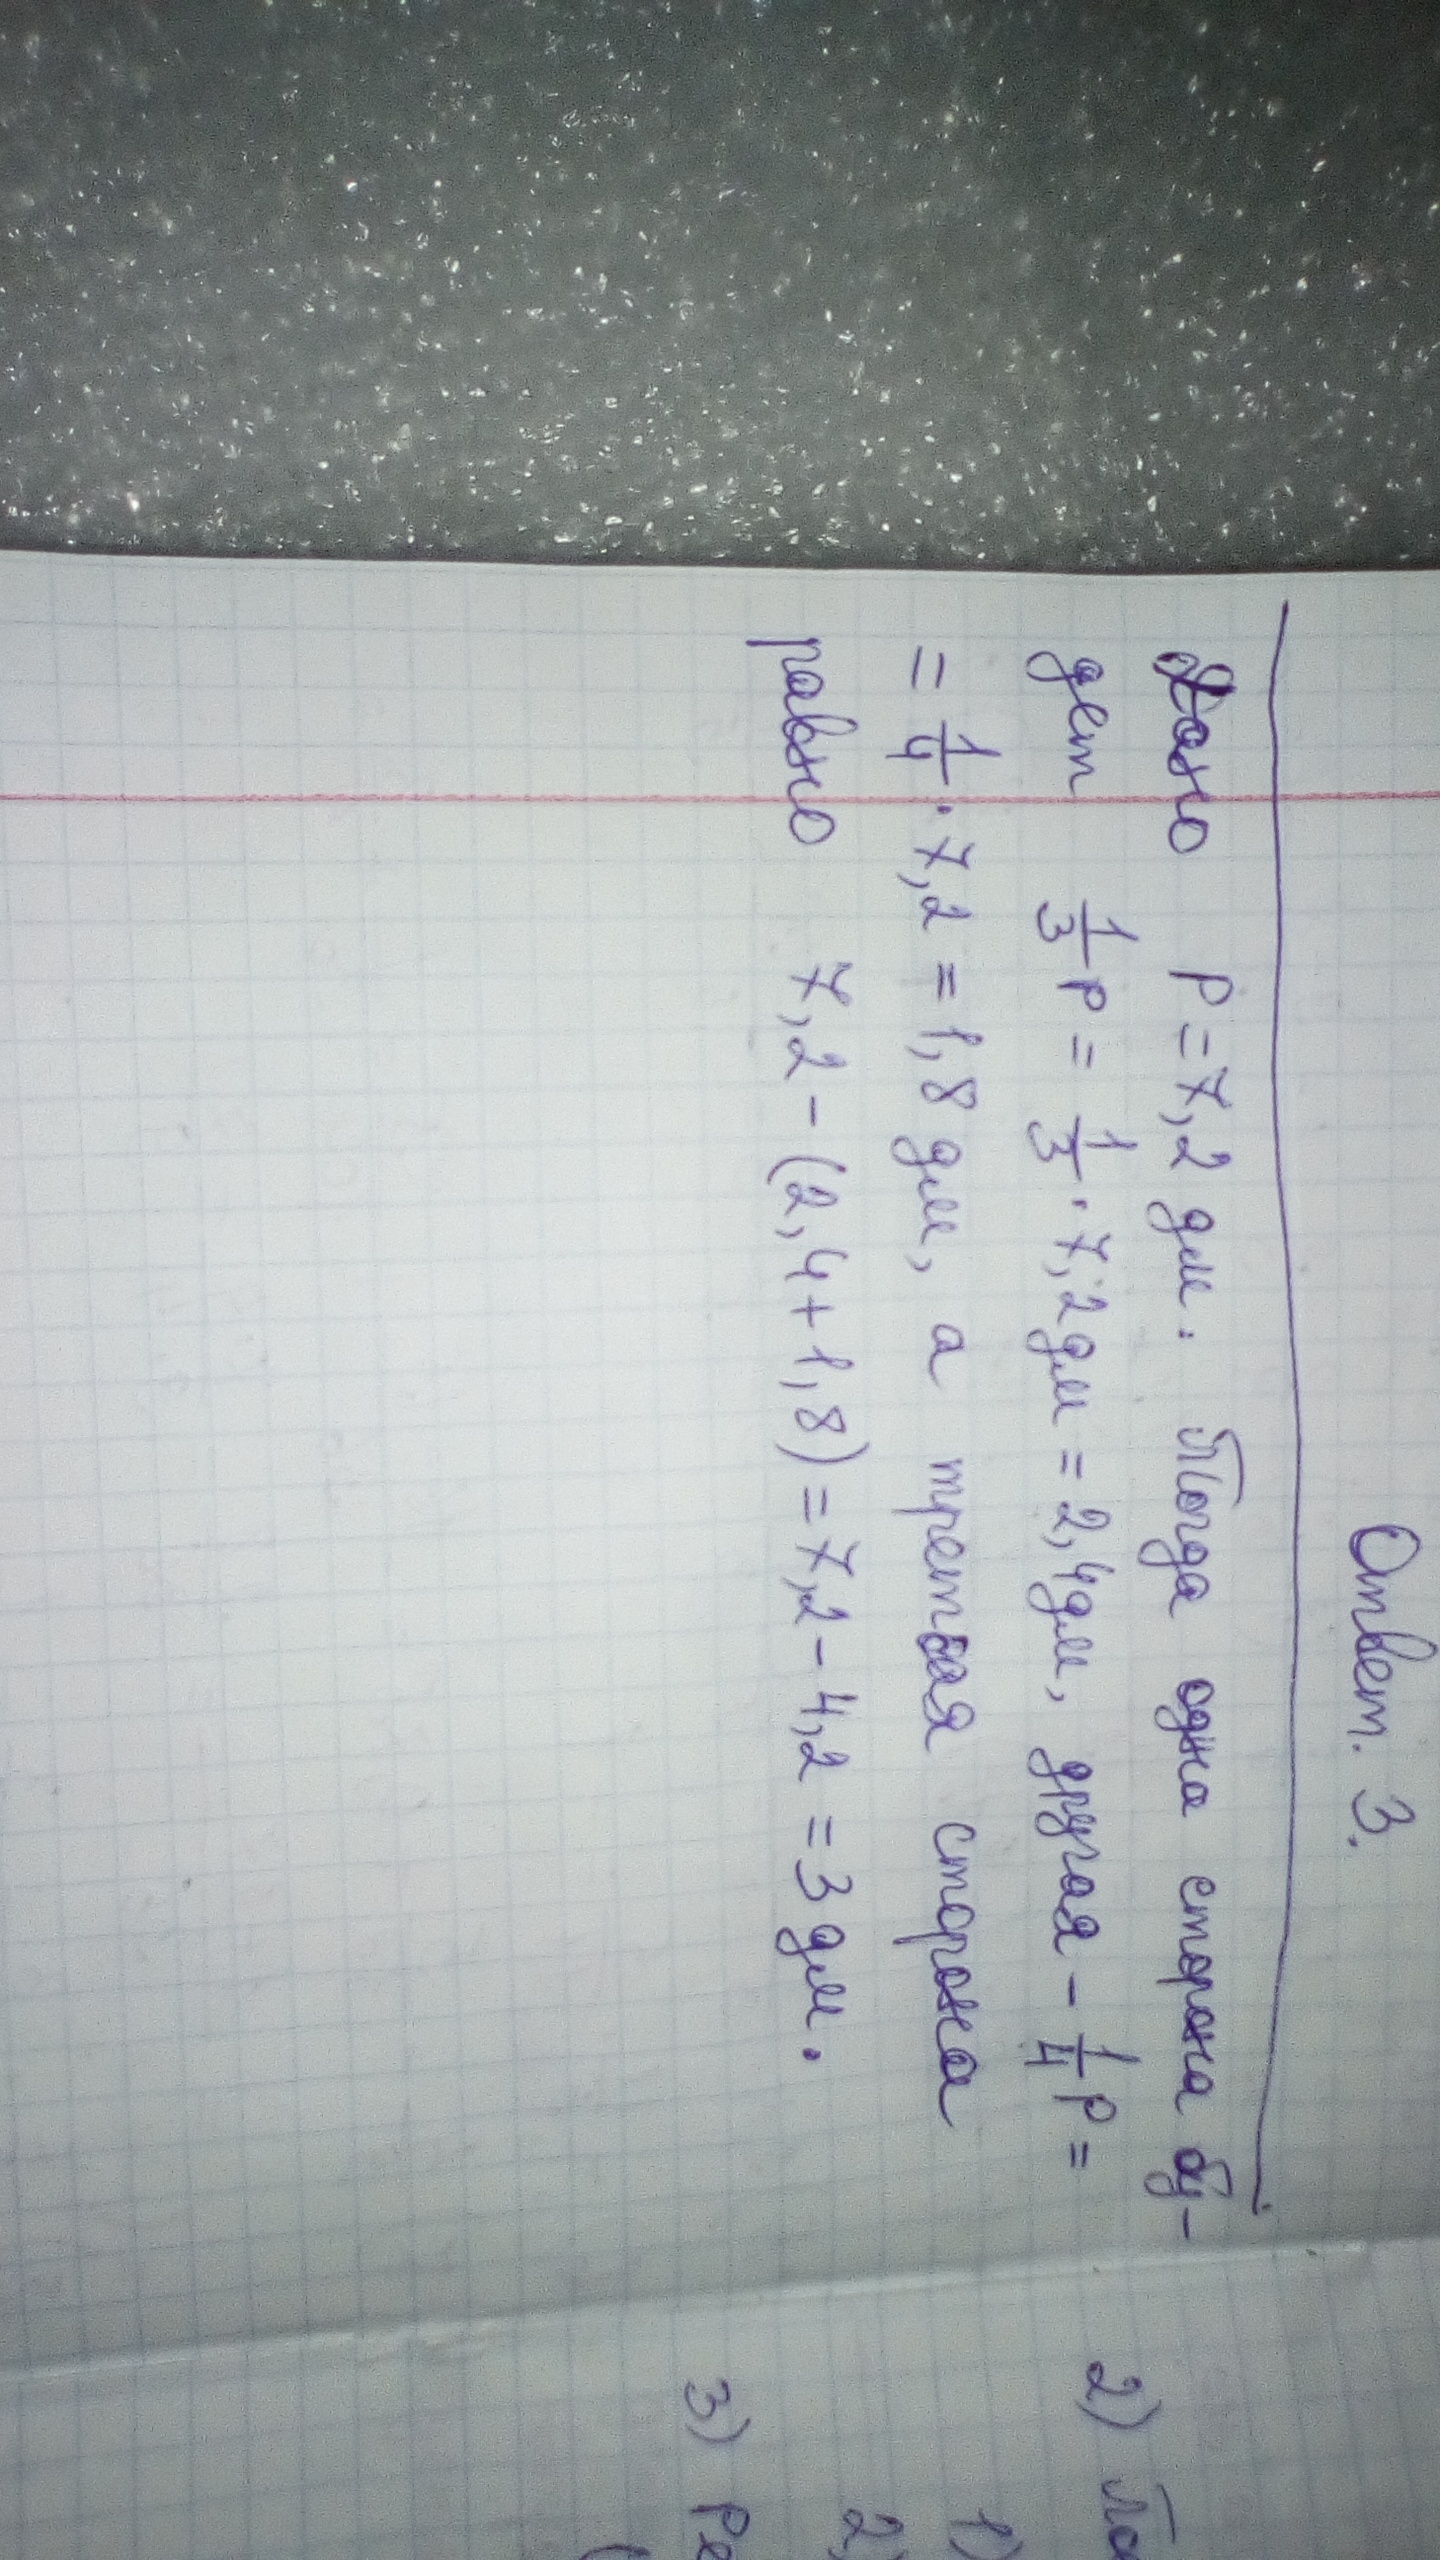 Ответ. 3.
Дано P = 7,2 дм. Тогда одна сторона бу-
дет 1/3 P = 1/3 · 7,2 дм = 2,4 дм, другая – 1/4 P =
= 1/4 · 7,2 = 1,8 дм, а третья сторона
равно 7,2 – (2,4 + 1,8) = 7,2 – 4,2 = 3 дм.
2)
1)
2)
3)